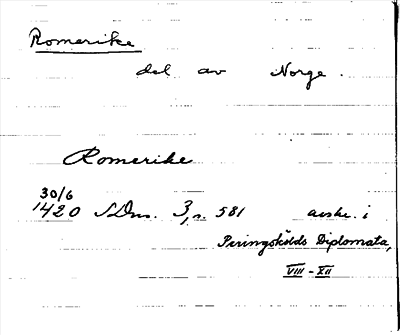 Romerike
del av Norge.
Romerike
30/6
1420 SDns. 3, s. 581 avskr. i
Peringskiölds Diplomata,
VIII - XII